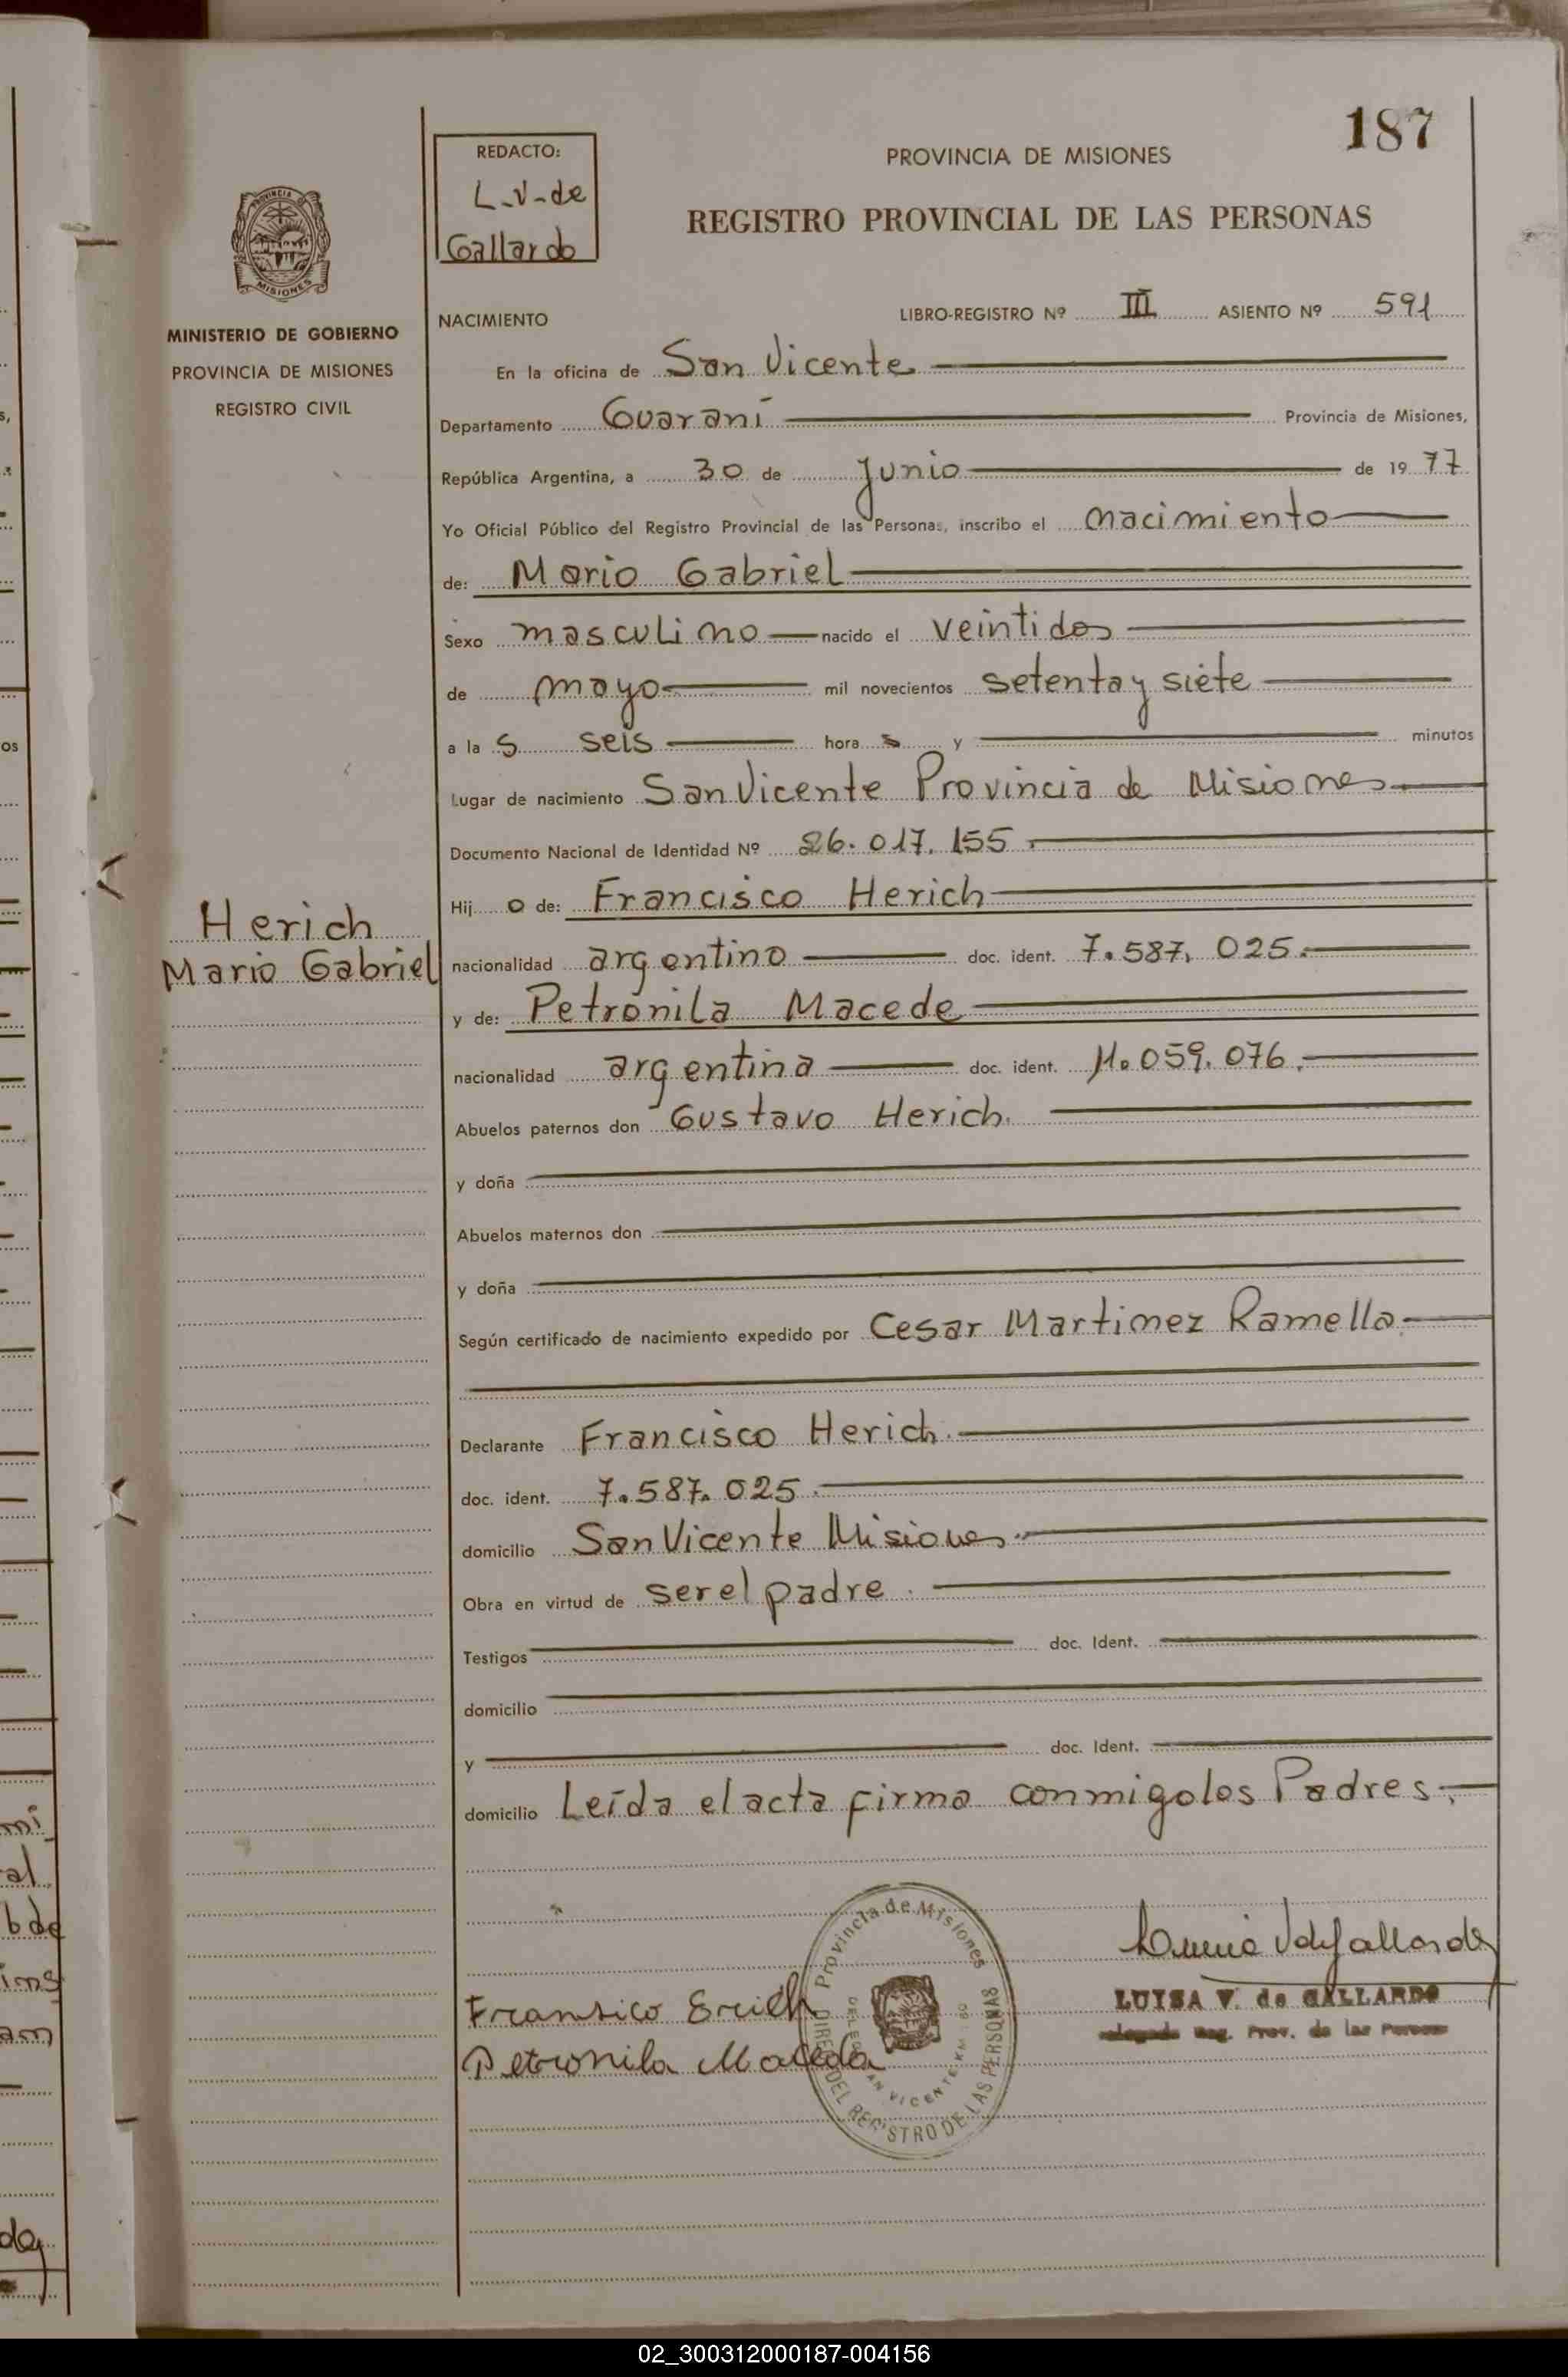 187
REDACTO:
L-V-de
Gallardo
PROVINCIA DE MISIONES
REGISTRO PROVINCIAL DE LAS PERSONAS
PROVINCIA
MISIONES
MINISTERIO DE GOBIERNO
PROVINCIA DE MISIONES
REGISTRO CIVIL
NACIMIENTO LIBRO-REGISTRO Nº III ASIENTO Nº 591
En la oficina de San Vicente
Departamento Guaraní Provincia de Misiones,
República Argentina, a 30 de Junio de 19 77
Yo Oficial Público del Registro Provincial de las Personas, inscribo el nacimiento
de: Mario Gabriel
Sexo masculino nacido el veintidos
de mayo mil novecientos setenta y siete
a la s seis hora s y minutos
Lugar de nacimiento San Vicente Provincia de Misiones
Documento Nacional de Identidad Nº 26.017.155
Hij o de: Francisco Herich
Herich
Mario Gabriel
nacionalidad argentino doc. ident. 7.587.025.
y de: Petronila Macede
nacionalidad argentina doc. ident. 059.076.
Abuelos paternos don Gustavo Herich.
y doña
Abuelos maternos don
y doña
Según certificado de nacimiento expedido por Cesar Martinez Ramella.
Declarante Francisco Herich.
doc. ident. 7.587.025.
domicilio San Vicente Misiones.
Obra en virtud de ser el padre.
Testigos doc. Ident.
domicilio
y doc. Ident.
domicilio Leída el acta firma conmigo los Padres.
Provincia de Misiones
DIREC DEL REGISTRO DE LAS PERSONAS
SAN VICENTE KM 80
Fransico Erich
Petronila Maceda
LUISA V. de GALLARDO
Reg. Prov. de las Personas
02_300312000187-004156